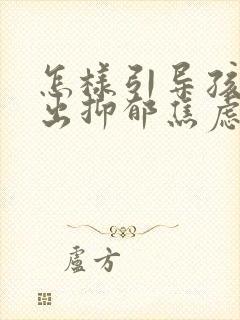 怎样引导孩
出抑郁焦虑
卢方